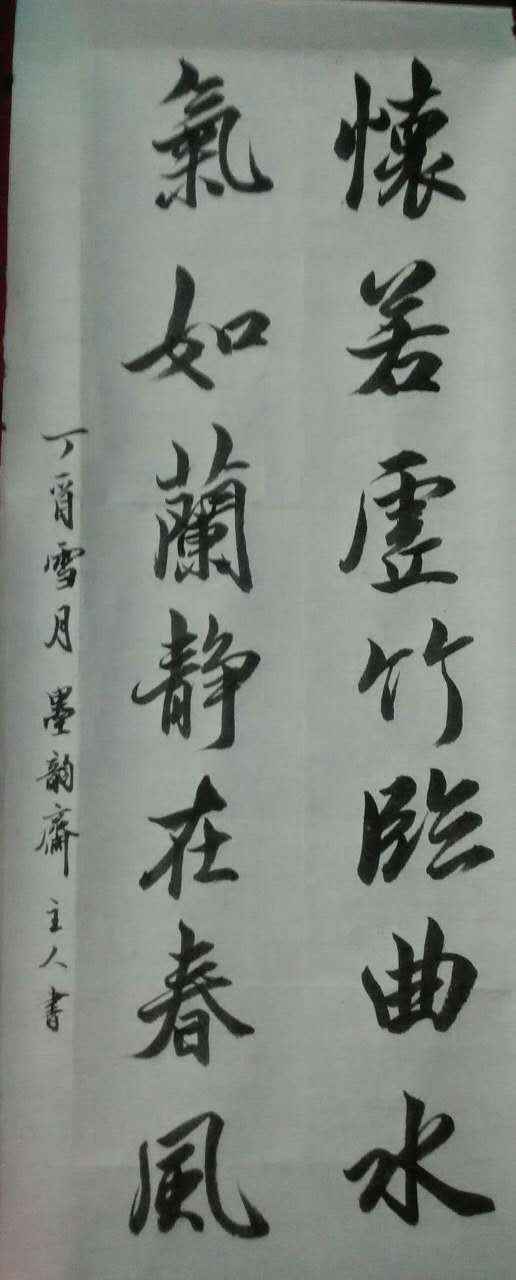 懷若虛竹臨曲水
氣如蘭静在春風
丁酉雪月 墨韵齋主人書